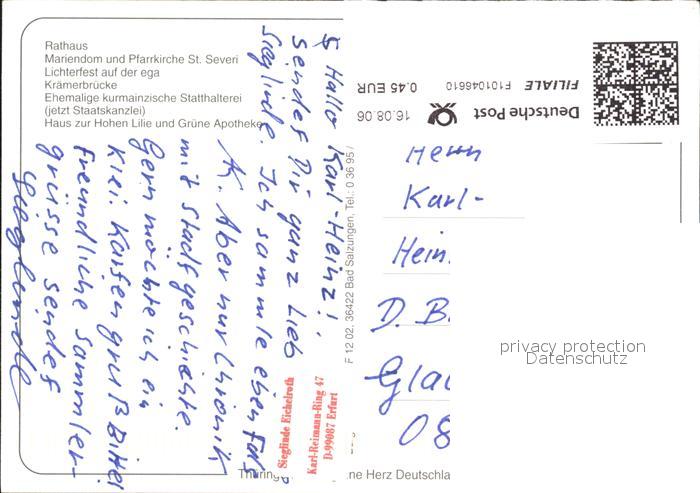 Rathaus
Mariendom und Pfarrkirche St. Severi
Lichterfest auf der ega
Krämerbrücke
Ehemalige kurmainzische Statthalterei
(jetzt Staatskanzlei)
Haus zur Hohen Lilie und Grüne Apotheke
Hallo Karl-Heinz!
sendet Dir ganz lieb
Sieglinde. Ich sammle ebenfals
AK. Aber nur Chronik
mit Stadtgeschichte.
Gern möchte ich ein
Klei. Kartengruß Bitte!
Freundliche Sammler-
grüsse sendet
Sieglinde
Sieglinde Eichelroth
Karl-Reimann-Ring 47
D-99087 Erfurt
F 12 02, 36422 Bad Salzungen, Tel.: 0 36 95 /
Deutsche Post
16.08.06 0.45 EUR
F101046610 FILIALE
Herrn
Karl-
Hein
D. B.
Gla
08
privacy protection
Datenschutz